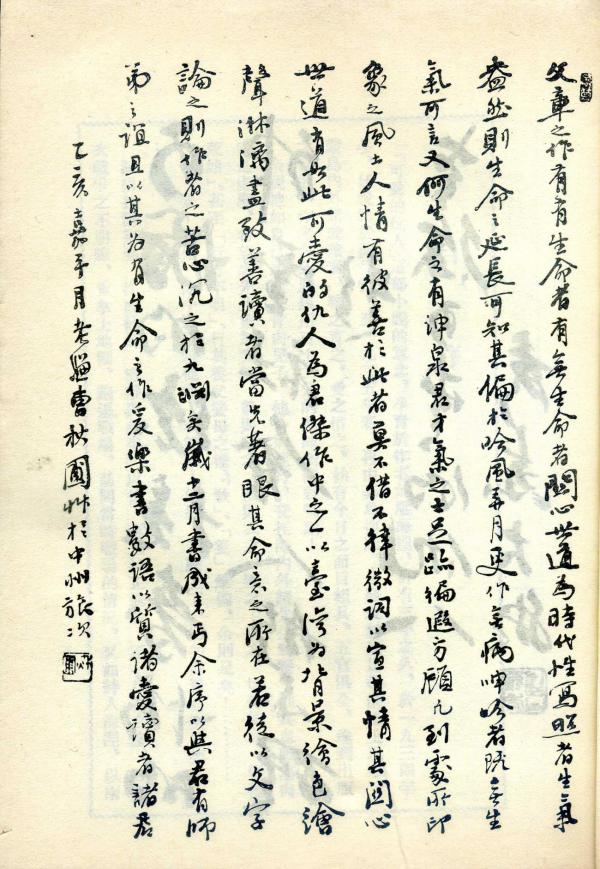 文章之作有有生命者有無生命者關心世道為時代性寫照者生氣
盎然則生命之延長可知其偏於吟風弄月更作無病呻吟者既無生
氣可言又何生命之有沖泉君才氣之士足跡徧遐方顧凡到處所印
象之風土人情有彼善於此者莫不借不律微詞以宣其情其關心
世道有如此可愛的仇人為君傑作中之一以臺灣為背景繪色繪
聲淋漓盡致善讀者當先著眼其命意之所在若徒以文字
論之則作者之苦心沉之於九淵矣歲十二月書成來丐余序以與君有師
弟之誼且以其為有生命之作爰樂書數語以質諸愛讀者諸君
乙亥嘉平月老嫌曹秋圃作於中州旅次